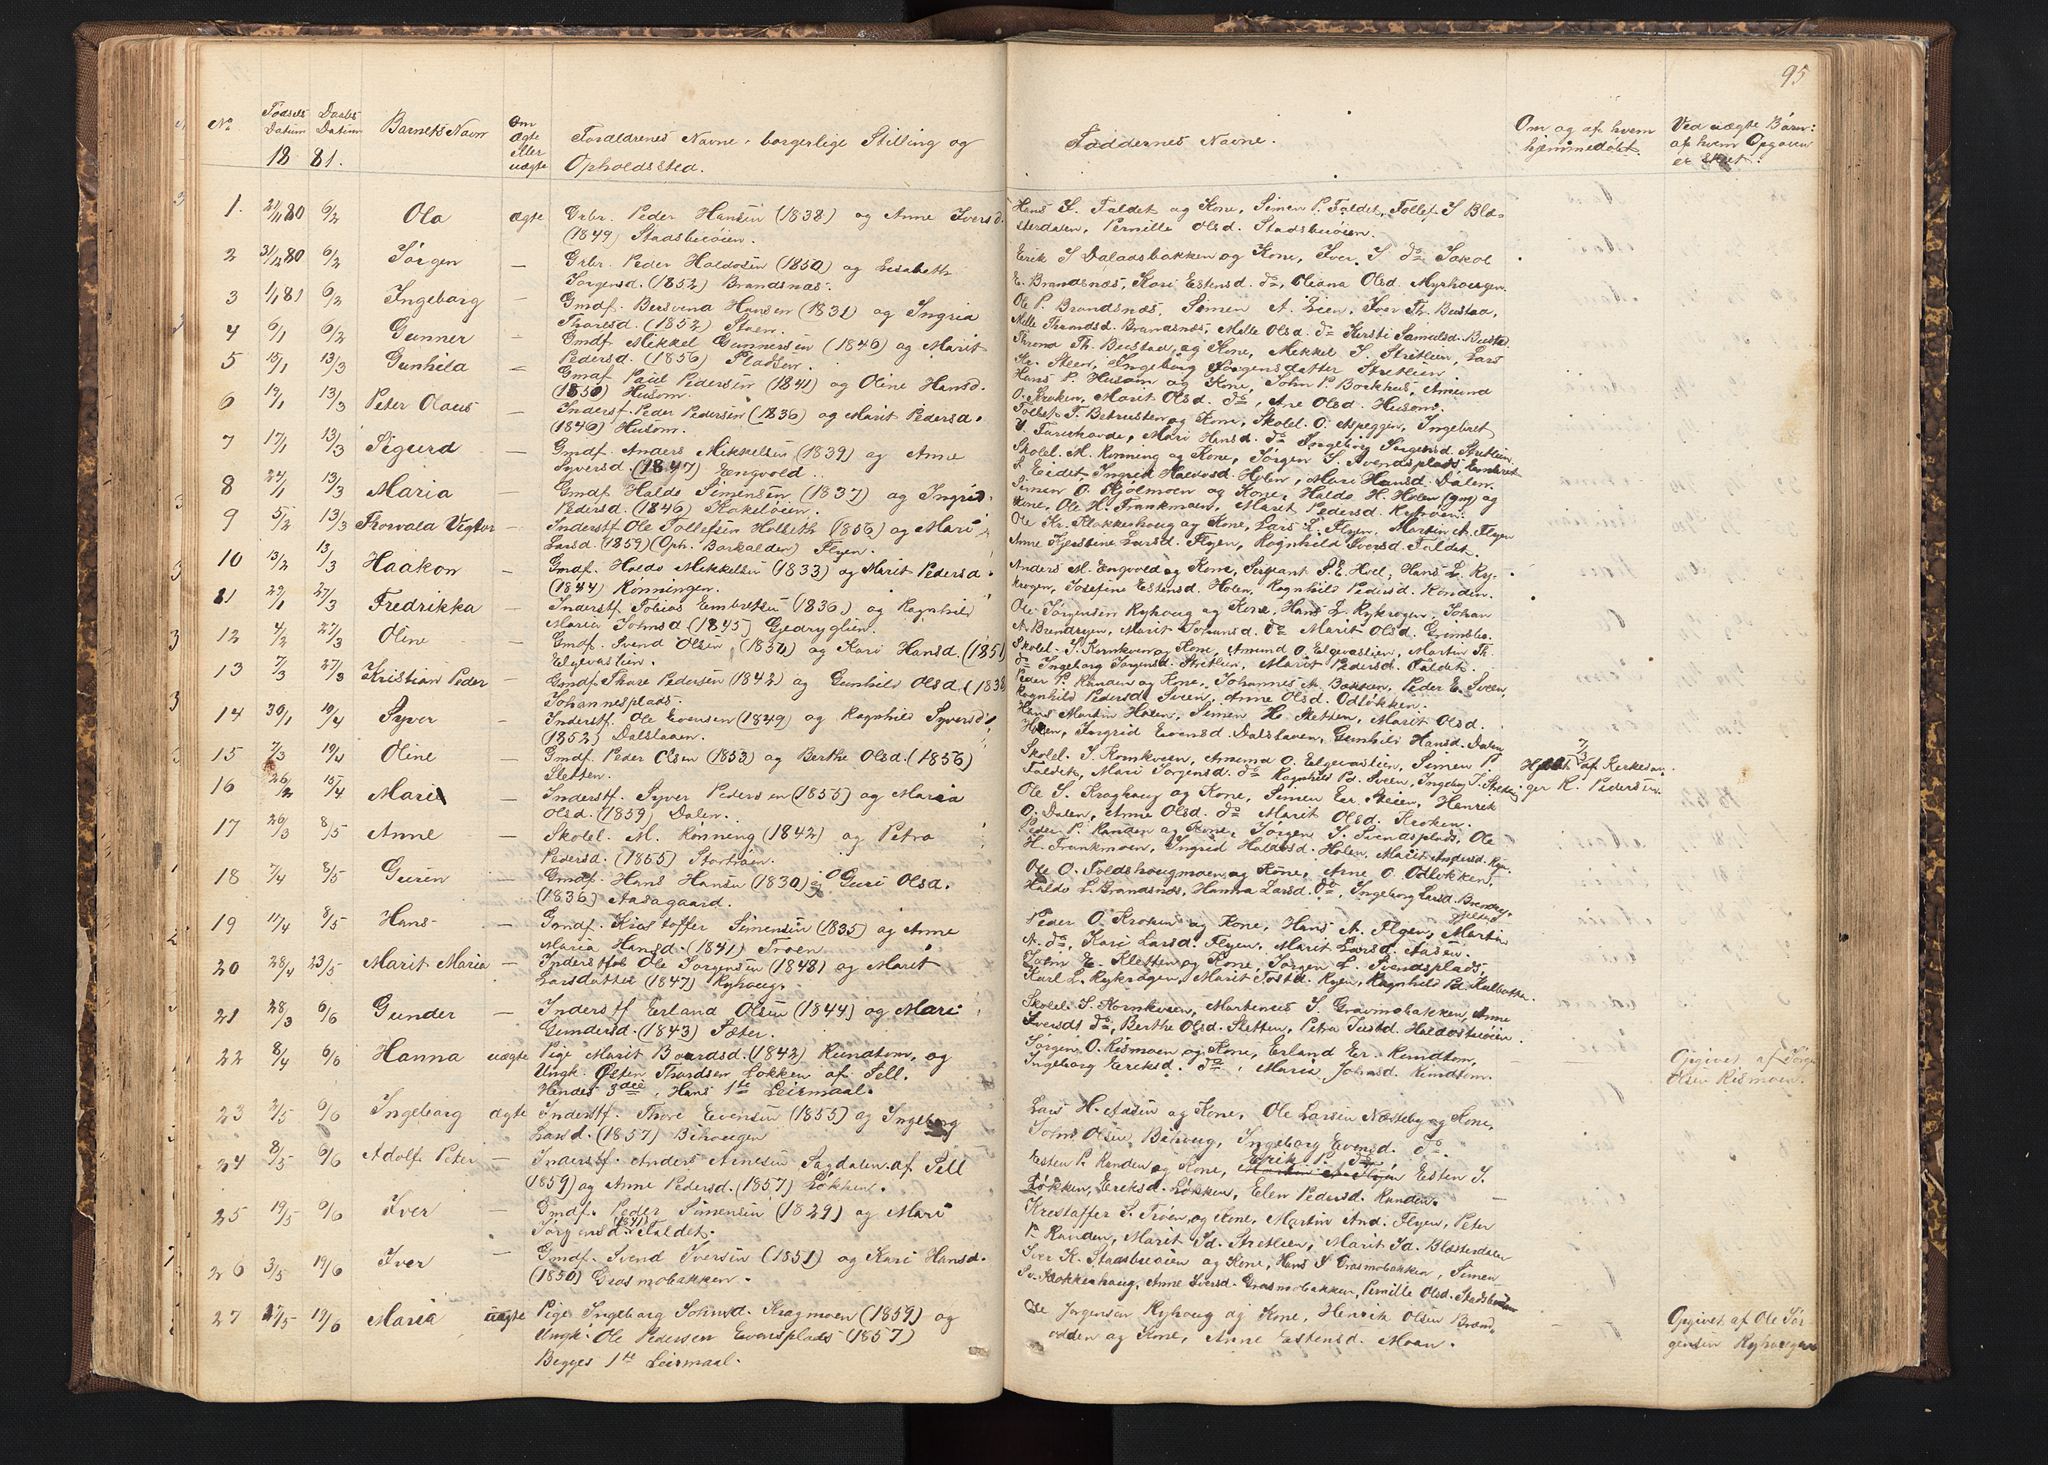 95
No
Fødsels Datum
Daabs Datum
Barnets Navn
Om ægte eller uægte
Forældrenes Navne, borgerlige Stilling og
Opholdssted.
Faddernes Navne.
Om og af hvem
hjemmedøbt.
Ved uægte Børn:
af hvem Opgaven
er skeet.
18 81.
1. 21/11 80 6/2 Ola ægte Grbr. Peder Hansen (1838) og Anne Iversd.
(1849) Stadsbuøien.
Hans S. Faldet og Kone, Simen P. Faldet, Tollef S. Blæ-
sterdalen, Pernille Olsd. Stadsbuøien.
2 31/12 80 6/2 Jørgen — Grbr. Peder Haldosen (1850) og Lisabeth
Jørgensd. (1852) Brandsnæs.
Erik S. Daladsbakken og Kone, Iver S. do Jakob
E. Brandsnæs, Kari Estensd. do, Oliana Olsd. Myrhougen.
3 1/1 81 6/2 Ingeborg — Gmdf. Bersvend Hansen (1831) og Ingrid
Thoresd. (1852) Stuen.
Ole P. Brandsnæs, Simen A. Lien, Iver Th. Bustad,
Mille Throndsd. Brandsnæs, Mille Olsd. do Kersti Samulsd. Bustad
4 6/1 6/2 Gunner — Gmdf. Mikkel Gunnersen (1846) og Marit
Pedersd. (1856) Pladsen.
Thrond Th. Bustad og Kone, Mikkel S. Stretlien, Lars
Kr. Steen, Ingeborg Jørgensdatter Stretlien.
5 15/1 13/3 Gunhild — Gmdf. Paul Pedersen (1841) og Oline Hansd.
(1850) Husom.
Hans P. Husom og Kone, John P. Borkhus, Amund
O. Kroken, Marit Olsd. do, Ane Olsd. Husom.
6 12/1 13/3 Peter Olaus — Inderstf. Peder Pedersen (1836) og Marit Pedersd.
(1846) Husom.
Tollef T. Betrusten og Kone, Skolel. O. Aspeggen, Ingebret
T. Furuhovde, Mari Hansd. do Ingeborg Jørgensd. Stretlien.
7 17/1 13/3 Sigurd — Gmdf. Anders Mikkelsen (1839) og Anne
Syversd. (1847) Engvold.
Skolel. M. Rønning og Kone, Jørgen S. Svendsplads, Embret
S. Eidet, Ingrid Haldosd. Holen, Mari Hansd. Dalen.
8 24/1 13/3 Maria — Gmdf. Haldo Simensen (1837) og Ingrid
Pedersd. (1846) Kokeløien.
Simen O. Hjelmoen og Kone, Haldo H. Holen (yng) og
Kone, Ole H. Frankmoen, Marit Pedersd.
9 5/2 13/3 Thorvald Vigter — Inderstf Ole Tollefsen Holleth (1856) og Mari
Larsd. (1859) (Oph. Borkalden) Flyen.
Ole Kr. Klokkerhoug og Kone, Lars L. Flyen, Martin A. Flyen
Anne Kjerstine Larsd. Flyen, Ragnhild Iversd. Faldet.
10 13/2 13/3 Haakon — Gmdf. Haldo Mikkelsen (1833) og Marit Pedersd.
(1844) Rønningen.
Anders M. Engvold og Kone, Sersjant S. E. Hoel, Hans L. Ry-
krogen, Josefine Estensd. Holen, Ragnhild Pedersd. Ronden.
11 29/1 27/3 Fredrikka — Inderstf. Tobias Embretsen (1836) og Ragnhild
Maria Johnsd. (1845) Gjedryglien.
Ole Jørgensen Ryhoug og Kone, Hans L. Rykrogen, Johan
A. Brendryen, Marit Johansd. do Marit Olsd. Grimsbo.
12 4/2 27/3 Oline — Gmdf. Svend Olsen (1850) og Kari Hansd. (1851
Elgevaslien.
Skolel. S. Kornkveen og Kone, Amund O. Elgevaslien, Martin Th.
do Ingeborg Jørgensd. Stretlien, Marit Pedersd. Faldet.
13 7/3 27/3 Kristian Peder — Gmdf. Thore Pedersen (1842) og Gunhild Olsd. (1838
Johannesplads.
Peder P. Randen og Kone, Johannes A. Bakken, Peder E. Sveen,
Ragnhild Pedersd. Sveen, Anne Olsd. Odløkken.
14 30/1 10/4 Syver — Inderstf. Ole Evensen (1849) og Ragnhild Syversd.
(1852) Dalslaaen.
Hans Martin Holen, Simen H. Sletten, Marit Olsd.
Holen, Ingrid Evensd. Dalslaaen, Gunhild Hansd. Dalen.
15 7/3 10/4 Oline — Gmdf. Peder Olsen (1853) og Berthe Olsd. (1856)
Sletten.
Skolel. S. Kornkveen, Amund O. Elgevaslien, Simen P.
Faldet, Mari Jørgensd. do Ragnhild Pd. Sveen, Ingeborg T. Sletten
7/3
Hjdbt. af Kirkesan-
ger K. Pedersen.
16 26/2 15/4 Mari — Inderstf. Syver Pedersen (1855) og Maria
Olsd. (1859) Dalen.
Ole S. Kraghoug og Kone, Simen Er. Steien, Henrik
O. Dalen, Anne Olsd. do Marit Olsd. Kroken.
17 26/3 8/5 Anne — Skolel. M. Rønning (1842) og Petra
Pedersd. (1855) Storhøen.
Peder P. Randen og Kone, Jørgen S. Svendsplads, Ole
H. Frankmoen, Ingrid Haldosd. Holen, Marit Andersd.
18 7/4 8/5 Guren — Gmdf. Hans Hansen (1830) og Guri Olsd.
(1836) Aasagaard.
Ole O. Foldshougmoen og Kone, Arne O. Odløkken,
Haldo L. Brandsnæs, Hanna Larsd. do, Ingeborg Larsd. Brendry-
jelden
19 11/4 8/5 Hans — Gmdf. Kristoffer Simensen (1835) og Anne
Maria Hansd. (1841) Troen.
Peder O. Kroken og Kone, Hans A. Flyen, Martin
A. do, Kari Larsd. Flyen, Marit Larsd. Aasen.
20 28/4 23/5 Marit Maria — Inderstfolk Ole Jørgensen (1848) og Marit
Larsdatter (1847) Ryhoug.
John E. Kletten og Kone, Jørgen L. Svendsplads,
Karl L. Rykrogen, Marit Tostd. Ryen, Ragnhild Pd. Kulbotten.
21 28/3 6/6 Gunder — Inderstf Erland Olsen (1844) og Mari
Gundersd. (1843) Sæter.
Skolel. S. Kornkveen, Martines S. Gravmobakken, Anne
Iversdt do, Berthe Olsd. Sletten, Petra Justd. Haldosbuøien.
22 8/4 6/6 Hanna uægte Pige Marit Baardsd. (1842) Rundtom, og
Ungk. Østen Thordsen Løkken af Sell.
Hendes 3die, Hans 1ste Leiermaal.
Jørgen O. Rismoen og Kone, Erland Er. Rundtom,
Ingeborg Eriksd. do, Maria Johnsd. Rundtom.
Opgivet af Jørgen
Olsen Rismoen.
23 2/5 6/6 Ingeborg ægte Inderstf. Thore Evensen (1855) og Ingeborg
Larsd. (1857) Bihougen
Lars H. Aasen og Kone, Ole Larsen Næsteby og Kone,
John Olsen Bihoug, Ingeborg Evensd. do.
24 8/5 6/6 Adolf Peter — Inderstf. Anders Arnesen Sagdalen af Sell
(1859) og Anne Pedersd. (1857) Løkken.
Esten P. Randen og Kone, Erik P. do, Esten S.
Løkken, Eriksd. Løkken, Elen Pedersd. Randen.
25 19/5 6/6 Iver — Gmdf. Peder Simensen (1829) og Mari
Jørgensd. (1841) Faldet.
Kristoffer S. Trøen og Kone, Martin And. Flyen, Peter
P. Randen, Marit Jd. Stretlien, Marit Jd. Blæsterdalen
26 3/5 19/6 Iver — Gmdf. Svend Iversen (1851) og Kari Hansd.
(1850) Grasmobakken.
Iver K. Stadsbuøien og Kone, Hans S. Grasmobakken, Simen
Sv. Klokkerhaug, Anne Iversd. Grasmobakken, Pernille Olsd. Stadsbuøien
27 17/5 19/6 Maria uægte Pige Ingeborg Johnsd. Kragmoen (1859) og
Ungk. Ole Pedersen Evensplads (1857)
Begges 1te Leiermaal.
Ole Jørgensen Ryhoug og Kone, Henrik Olsen Brænd-
odden og Kone, Anne Estensd. Moan.
Opgivet af Ole Jør-
gensen Ryhougen